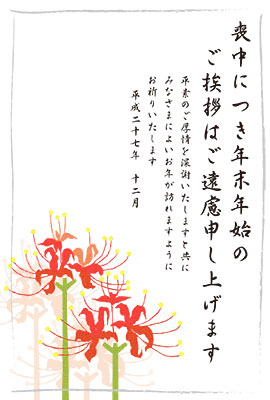 喪中につき年末年始の
ご挨拶はご遠慮申し上げます
平素のご厚情を深謝いたしますと共に
みなさまによいお年が訪れますように
お祈りいたします
平成二十七年 十二月